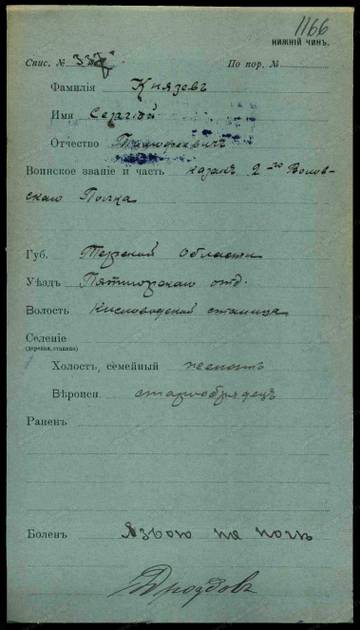 1166
НИЖНІЙ ЧИНЪ.
Спис. № 337 По пор. №
Фамилія Князевъ
Имя Сергѣй
Отчество Тимофеевичъ
Воинское званіе и часть казакъ 2-го Волов-
скаго Полка
Губ. Терской Области
Уѣздъ Пятигорскаго отд.
Волость Кисловодской станицы
Селеніе
(деревня, станица)
Холостъ, семейный холостъ
Вѣроисп. старообрядецъ
Раненъ
Боленъ Язвою на ногѣ
Дроздовъ